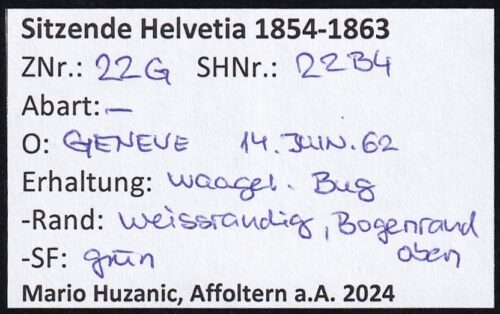 Sitzende Helvetia 1854-1863
ZNr.: 22G SHNr.: 22B4
Abart: -
O: GENEVE 14. JUIN. 62
Erhaltung: waager. Bug
-Rand: weissrandig, Bogenrand oben
-SF: grün
Mario Huzanic, Affoltern a.A. 2024